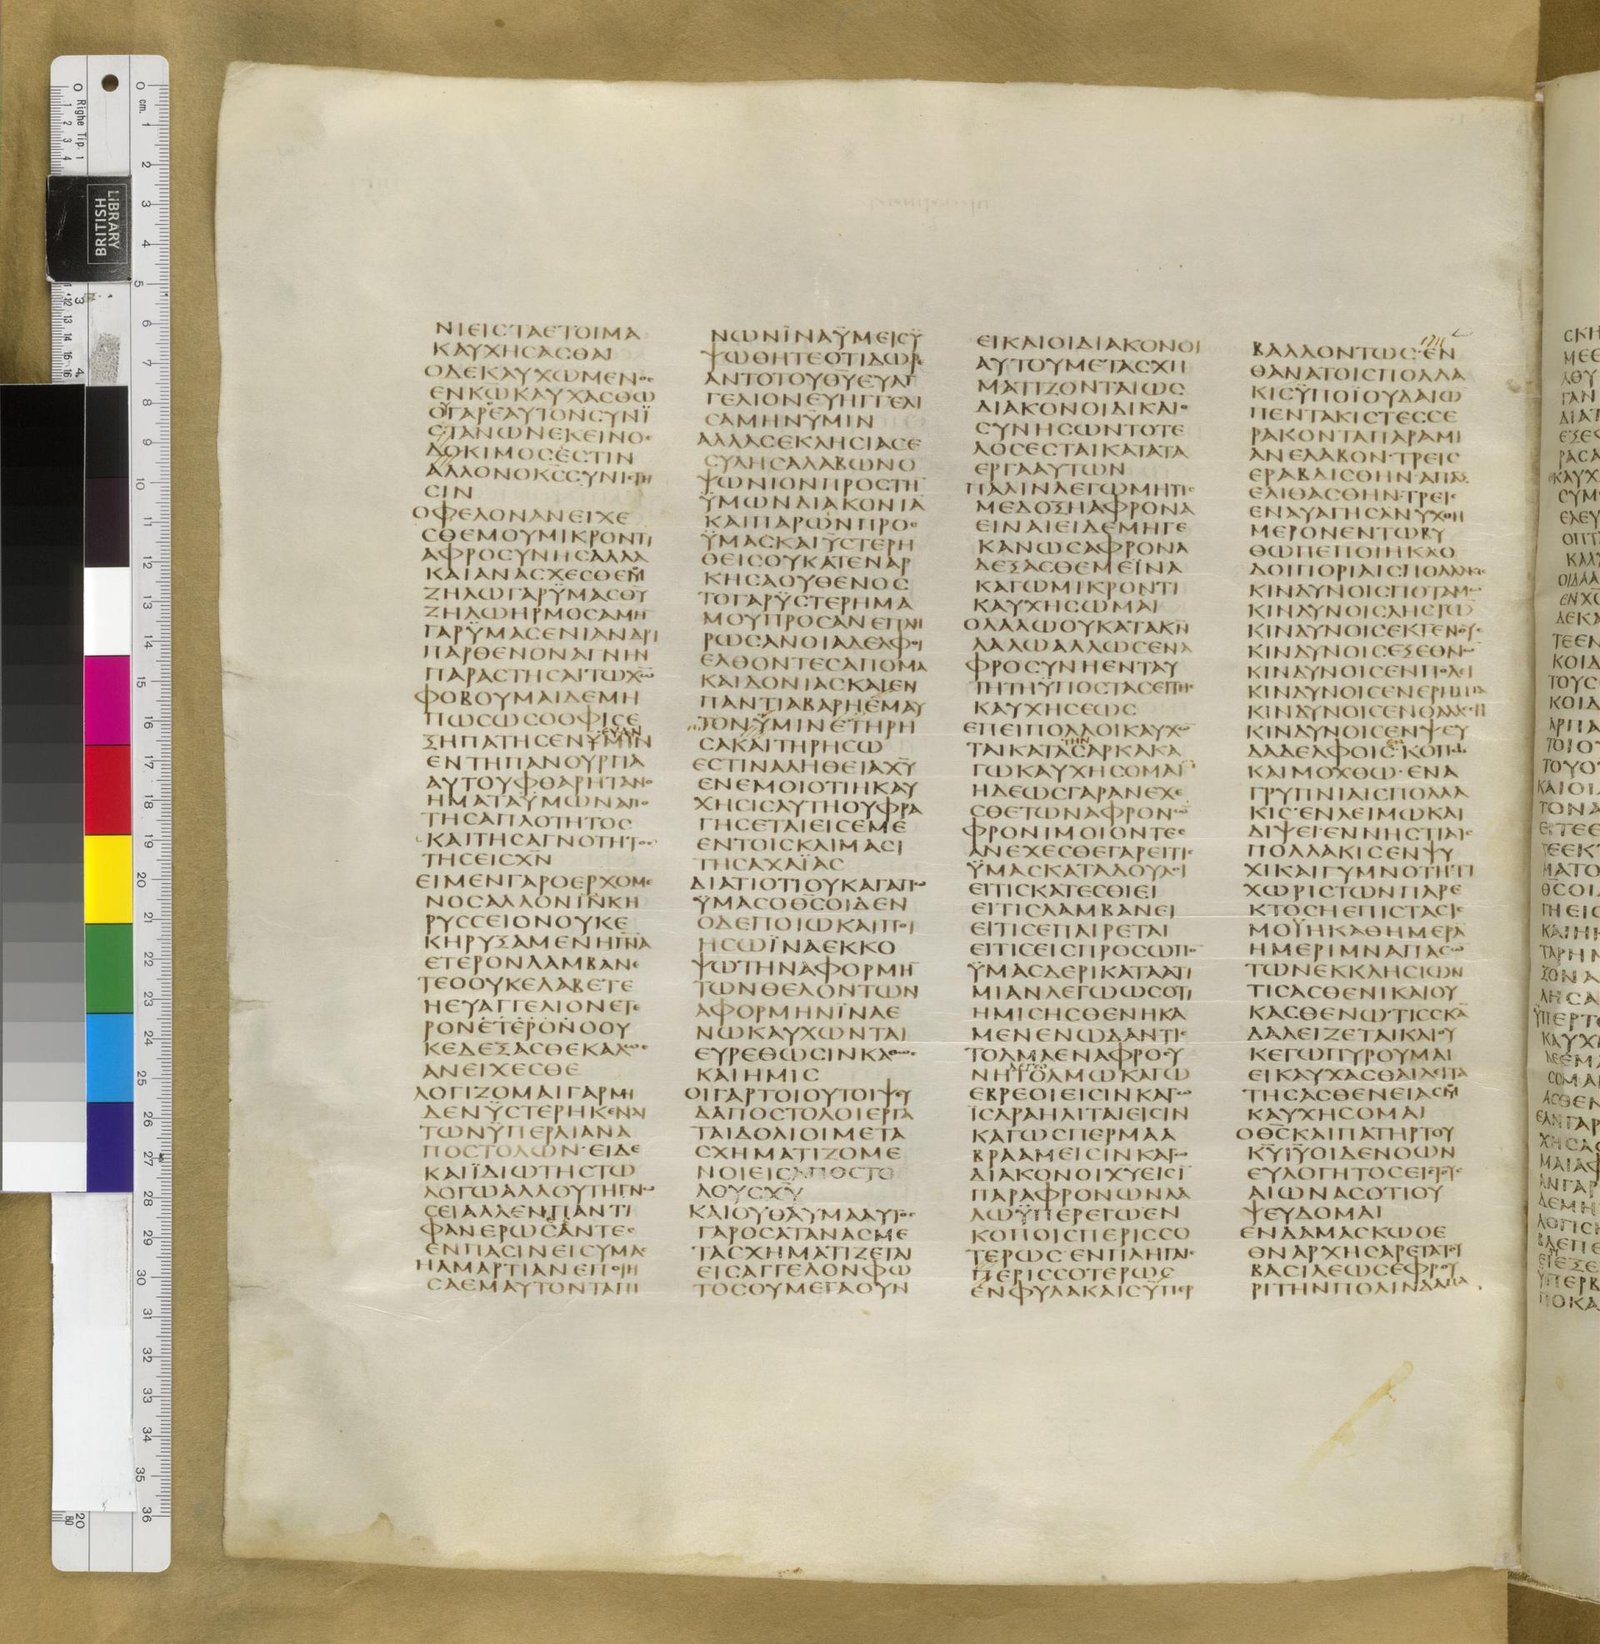 ΝΙΕΙϹΤΑΕΤΟΙΜΑ
ΚΑΥΧΗϹΑϹΘΑΙ
ΟΔΕΚΑΥΧΩΜΕΝΟϹ
ΕΝΚΩΚΑΥΧΑϹΘΩ
ΟΓΑΡΕΑΥΤΟΝϹΥΝΪ
ϹΤΑΝΩΝΕΚΕΙΝΟϹ
ΔΟΚΙΜΟϹΕϹΤΙΝ
ΑΛΛΟΝΟΚϹϹΥΝΙϹΤΗ
ϹΙΝ
ΟΦΕΛΟΝΑΝΕΙΧΕ
ϹΘΕΜΟΥΜΙΚΡΟΝΤΙ
ΑΦΡΟϹΥΝΗϹΑΛΛΑ
ΚΑΙΑΝΑϹΧΕϹΘΕΜ̅
ΖΗΛΩΓΑΡΫΜΑϹΘΥ
ΖΗΛΩΗΡΜΟϹΑΜΗ
ΓΑΡΫΜΑϹΕΝΙΑΝΔΡΙ
ΠΑΡΘΕΝΟΝΑΓΝΗΝ
ΠΑΡΑϹΤΗϹΑΙΤΩΧΩ
ΦΟΒΟΥΜΑΙΔΕΜΗ
ΠΩϹΩϹΟΟΦΙϹΕ
ΕΥΑΝ
ΞΗΠΑΤΗϹΕΝΫΜΙΝ
ΕΝΤΗΠΑΝΟΥΡΓΙΑ
ΑΥΤΟΥΦΘΑΡΗΤΑΝΟ
ΗΜΑΤΑΫΜΩΝΑΠΟ
ΤΗϹΑΠΛΟΤΗΤΟϹ
ΚΑΙΤΗϹΑΓΝΟΤΗΤΟϹ
ΤΗϹΕΙϹΧΝ
ΕΙΜΕΝΓΑΡΟΕΡΧΟΜΕ
ΝΟϹΑΛΛΟΝΙΝ̅ΚΗ
ΡΥϹϹΕΙΟΝΟΥΚΕ
ΚΗΡΥΞΑΜΕΝΗΠΝΑ
ΕΤΕΡΟΝΛΑΜΒΑΝΕ
ΤΕΟΟΥΚΕΛΑΒΕΤΕ
ΗΕΥΑΓΓΕΛΙΟΝΕΤΕ
ΡΟΝΕΤΕΡΟΝΟΟΥ
ΚΕΔΕΞΑϹΘΕΚΑΛΩϹ
ΑΝΕΙΧΕϹΘΕ
ΛΟΓΙΖΟΜΑΙΓΑΡΜΗ
ΔΕΝΫϹΤΕΡΗΚΕΝΑΙ
ΤΩΝΫΠΕΡΛΙΑΝΑ
ΠΟϹΤΟΛΩΝ·ΕΙΔΕ
ΚΑΙΪΔΙΩΤΗϹΤΩ
ΛΟΓΩΑΛΛΟΥΤΗΓΝΩ
ϹΕΙΑΛΛΕΝΠΑΝΤΙ
ΦΑΝΕΡΩϹΑΝΤΕϹ
ΕΝΠΑϹΙΝΕΙϹΥΜΑϹ
ΗΑΜΑΡΤΙΑΝΕΠΟΙΗ
ϹΑΕΜΑΥΤΟΝΤΑΠΙ
ΝΩΝΪΝΑΫΜΕΙϹΫ
ΨΩΘΗΤΕΟΤΙΔΩΡΕ
ΑΝΤΟΤΟΥΘΥΕΥΑΓ
ΓΕΛΙΟΝΕΥΗΓΓΕΛΙ
ϹΑΜΗΝΫΜΙΝ
ΑΛΛΑϹΕΚΛΗϹΙΑϹΕ
ϹΥΛΗϹΑΛΑΒΩΝΟ
ΨΩΝΙΟΝΠΡΟϹΤΗ
ΫΜΩΝΔΙΑΚΟΝΙΑ
ΚΑΙΠΑΡΩΝΠΡΟϹ
ΫΜΑϹΚΑΙΫϹΤΕΡΗ
ΘΕΙϹΟΥΚΑΤΕΝΑΡ
ΚΗϹΑΟΥΘΕΝΟϹ
ΤΟΓΑΡΫϹΤΕΡΗΜΑ
ΜΟΥΠΡΟϹΑΝΕΠΛΗ
ΡΩϹΑΝΟΙΑΔΕΛΦΟΙ
ΕΛΘΟΝΤΕϹΑΠΟΜΑ
ΚΑΙΔΟΝΙΑϹΚΑΙΕΝ
ΠΑΝΤΙΑΒΑΡΗΕΜΑΥ
ΤΟΝΫΜΙΝΕΤΗΡΗ
ϹΑΚΑΙΤΗΡΗϹΩ
ΕϹΤΙΝΑΛΗΘΕΙΑΧΥ
ΕΝΕΜΟΙΟΤΙΗΚΑΥ
ΧΗϹΙϹΑΥΤΗΟΥΦΡΑ
ΓΗϹΕΤΑΙΕΙϹΕΜΕ
ΕΝΤΟΙϹΚΛΙΜΑϹΙ
ΤΗϹΑΧΑΪΑϹ
ΔΙΑΤΙΟΤΙΟΥΚΑΓΑΠΩ
ΫΜΑϹΟΘϹΟΙΔΕΝ
ΟΔΕΠΟΙΩΚΑΙΠΟΙ
ΗϹΩΪΝΑΕΚΚΟ
ΨΩΤΗΝΑΦΟΡΜΗ̅
ΤΩΝΘΕΛΟΝΤΩΝ
ΑΦΟΡΜΗΝΪΝΑΕ
ΝΩΚΑΥΧΩΝΤΑΙ
ΕΥΡΕΘΩϹΙΝΚΑΘΩϹ
ΚΑΙΗΜΙϹ
ΟΙΓΑΡΤΟΙΟΥΤΟΙΨΕΥ
ΔΑΠΟϹΤΟΛΟΙΕΡΓΑ
ΤΑΙΔΟΛΙΟΙΜΕΤΑ
ϹΧΗΜΑΤΙΖΟΜΕ
ΝΟΙΕΙϹΑΠΟϹΤΟ
ΛΟΥϹΧΥ
ΚΑΙΟΥΘΑΥΜΑΑΥΤΟϹ
ΓΑΡΟϹΑΤΑΝΑϹΜΕ
ΤΑϹΧΗΜΑΤΙΖΕΤΑΙ
ΕΙϹΑΓΓΕΛΟΝΦΩ
ΤΟϹΟΥΜΕΓΑΟΥΝ
ΕΙΚΑΙΟΙΔΙΑΚΟΝΟΙ
ΑΥΤΟΥΜΕΤΑϹΧΗ
ΜΑΤΙΖΟΝΤΑΙΩϹ
ΔΙΑΚΟΝΟΙΔΙΚΑΙΟ
ϹΥΝΗϹΩΝΤΟΤΕ
ΛΟϹΕϹΤΑΙΚΑΤΑΤΑ
ΕΡΓΑΑΥΤΩΝ
ΠΑΛΙΝΛΕΓΩΜΗΤΙϹ
ΜΕΔΟΞΗΑΦΡΟΝΑ
ΕΙΝΑΙΕΙΔΕΜΗΓΕ
ΚΑΝΩϹΑΦΡΟΝΑ
ΔΕΞΑϹΘΕΜΕΪΝΑ
ΚΑΓΩΜΙΚΡΟΝΤΙ
ΚΑΥΧΗϹΩΜΑΙ
ΟΛΑΛΩΟΥΚΑΤΑΚΝ̅
ΛΑΛΩΑΛΛΩϹΕΝΑ
ΦΡΟϹΥΝΗΕΝΤΑΥ
ΤΗΤΗΫΠΟϹΤΑϹΕΙΤΗϹ
ΚΑΥΧΗϹΕΩϹ
ΕΠΕΙΠΟΛΛΟΙΚΑΥΧΩ
ΤΗΝ
ΤΑΙΚΑΤΑϹΑΡΚΑΚΑ
ΓΩΚΑΥΧΗϹΟΜΑΙ
ΗΔΕΩϹΓΑΡΑΝΕΧΕ
ϹΘΕΤΩΝΑΦΡΟΝΩ
ΦΡΟΝΙΜΟΙΟΝΤΕϹ
ΑΝΕΧΕϹΘΕΓΑΡΕΙΤΙϹ
ΫΜΑϹΚΑΤΑΔΟΥΛΟΙ
ΕΙΤΙϹΚΑΤΕϹΘΙΕΙ
ΕΙΤΙϹΛΑΜΒΑΝΕΙ
ΕΙΤΙϹΕΠΑΙΡΕΤΑΙ
ΕΙΤΙϹΕΙϹΠΡΟϹΩΠΟ
ΫΜΑϹΔΕΡΙΚΑΤΑΑΤΙ
ΜΙΑΝΛΕΓΩΩϹΟΤΙ
ΗΜΙϹΗϹΘΕΝΗΚΑ
ΜΕΝΕΝΩΔΑΝΤΙϹ
ΤΟΛΜΑΕΝΑΦΡΟϹΥ
ΛΕΓΩ
ΝΗΤΟΛΜΩΚΑΓΩ
ΕΒΡΕΟΙΕΙϹΙΝΚΑΓΩ
ΪϹΑΡΑΗΛΙΤΑΙΕΙϹΙΝ
ΚΑΓΩϹΠΕΡΜΑΑ
ΒΡΑΑΜΕΙϹΙΝΚΑΓΩ
ΔΙΑΚΟΝΟΙΧΥΕΙϹΙ
ΠΑΡΑΦΡΟΝΩΝΛΑ
ΛΩΫΠΕΡΕΓΩΕΝ
ΚΟΠΟΙϹΠΕΡΙϹϹΟ
ΤΕΡΩϹ·ΕΝΠΛΗΓΑΙϹ
ΠΕΡΙϹϹΟΤΕΡΩϹ
ΕΝΦΥΛΑΚΑΙϹΫΠΕΡ
ΒΑΛΛΟΝΤΩϹ·ΕΝ
ΘΑΝΑΤΟΙϹΠΟΛΛΑ
ΚΙϹΫΠΟΪΟΥΔΑΙΩ
ΠΕΝΤΑΚΙϹΤΕϹϹΕ
ΡΑΚΟΝΤΑΠΑΡΑΜΙ
ΑΝΕΛΑΒΟΝ·ΤΡΕΙϹ
ΕΡΑΒΔΙϹΘΗΝ·ΑΠΑΞ
ΕΛΙΘΑϹΘΗΝ·ΤΡΕΙϹ
ΕΝΑΥΑΓΗϹΑΝΥΧΘΗ
ΜΕΡΟΝΕΝΤΩΒΥ
ΘΩΠΕΠΟΙΗΚΑΟ
ΔΟΙΠΟΡΙΑΙϹΠΟΛΛΑΚΙϹ
ΚΙΝΔΥΝΟΙϹΠΟΤΑΜΩ
ΚΙΝΔΥΝΟΙϹΛΗϹΤΩ
ΚΙΝΔΥΝΟΙϹΕΚΓΕΝΟΥϹ
ΚΙΝΔΥΝΟΙϹΕΞΕΘΝΩ
ΚΙΝΔΥΝΟΙϹΕΝΠΟΛΕΙ
ΚΙΝΔΥΝΟΙϹΕΝΕΡΗΜΙΑ
ΚΙΝΔΥΝΟΙϹΕΝΘΑΛΑϹϹΗ
ΚΙΝΔΥΝΟΙϹΕΝΨΕΥ
ΔΑΔΕΛΦΟΙϹ·ΚΟΠΩ
ΚΑΙΜΟΧΘΩ·ΕΝΑ
ΓΡΥΠΝΙΑΙϹΠΟΛΛΑ
ΚΙϹ·ΕΝΛΕΙΜΩΚΑΙ
ΔΙΨΕΙ·ΕΝΝΗϹΤΙΑΙϹ
ΠΟΛΛΑΚΙϹΕΝΨΥ
ΧΙΚΑΙΓΥΜΝΟΤΗΤΙ
ΧΩΡΙϹΤΩΝΠΑΡΕ
ΚΤΟϹΗΕΠΙϹΤΑϹΙϹ
ΜΟΪΗΚΑΘΗΜΕΡΑ
ΗΜΕΡΙΜΝΑΠΑϹΩ
ΤΩΝΕΚΚΛΗϹΙΩΝ
ΤΙϹΑϹΘΕΝΙΚΑΙΟΥ
ΚΑϹΘΕΝΩΤΙϹϹΚΑ
ΔΑΛΕΙΖΕΤΑΙΚΑΙΟΥ
ΚΕΓΩΠΥΡΟΥΜΑΙ
ΕΙΚΑΥΧΑϹΘΑΙΔΕΙΤΑ
ΤΗϹΑϹΘΕΝΕΙΑϹΜ̅
ΚΑΥΧΗϹΟΜΑΙ
ΟΘϹΚΑΙΠΑΤΗΡΤΟΥ
ΚΥΪΥΟΙΔΕΝΟΩΝ
ΕΥΛΟΓΗΤΟϹΕΙϹΤΟΥϹ
ΑΙΩΝΑϹΟΤΙΟΥ
ΨΕΥΔΟΜΑΙ
ΕΝΔΑΜΑϹΚΩΟΕ
ΘΝΑΡΧΗϹΑΡΕΤΑΤΟΥ
ΒΑϹΙΛΕΩϹΕΦΡΟΥ
ΡΙΤΗΝΠΟΛΙΝΔΑΜΑ